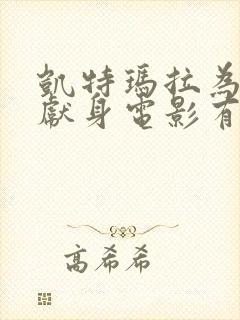 凱特瑪拉為
獻身電影有
高希希